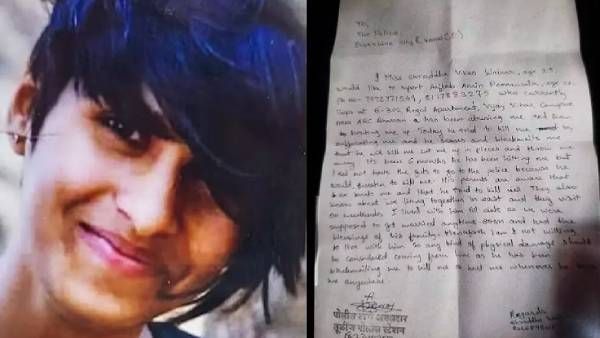 To,
The Police,
I Miss Shraddha Vikas Walkar, age 25,
would like to report Aftab Amin Poonawala, age 26,
who currently
lives at B-302 Regal Apartment, Vijay Vihar, Complex
has been abusing me and
beating me up Today he tried to kill me by
suffocating me and he scares and blackmails me
that he will kill me, cut me up in pieces and throw me
away. It's been 6 months he has been hitting me but
I did not have the guts to go to the police because he
would threaten to kill me. His parents are aware that
he beats me and that he tried to kill me. They also
know about we living together in and they visit
on weekends. I lived with him till date as we were
supposed to get married anytime soon and had the
blessings of his family. Henceforth I am not willing
to live with him so any kind of physical damage should
be considered coming from him as he has been
blackmailing me to kill me or hurt me whenever he sees
me anywhere.
Regards
Shraddha
पोलीस
पोलीस स्टेशन